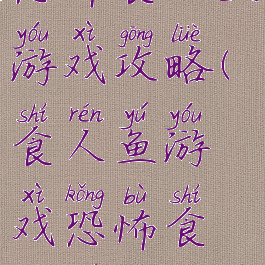 yóu xì gōng lüè
游戏攻略(
shí rén yú yóu
食人鱼游
xì kǒng bù shí
戏恐怖食